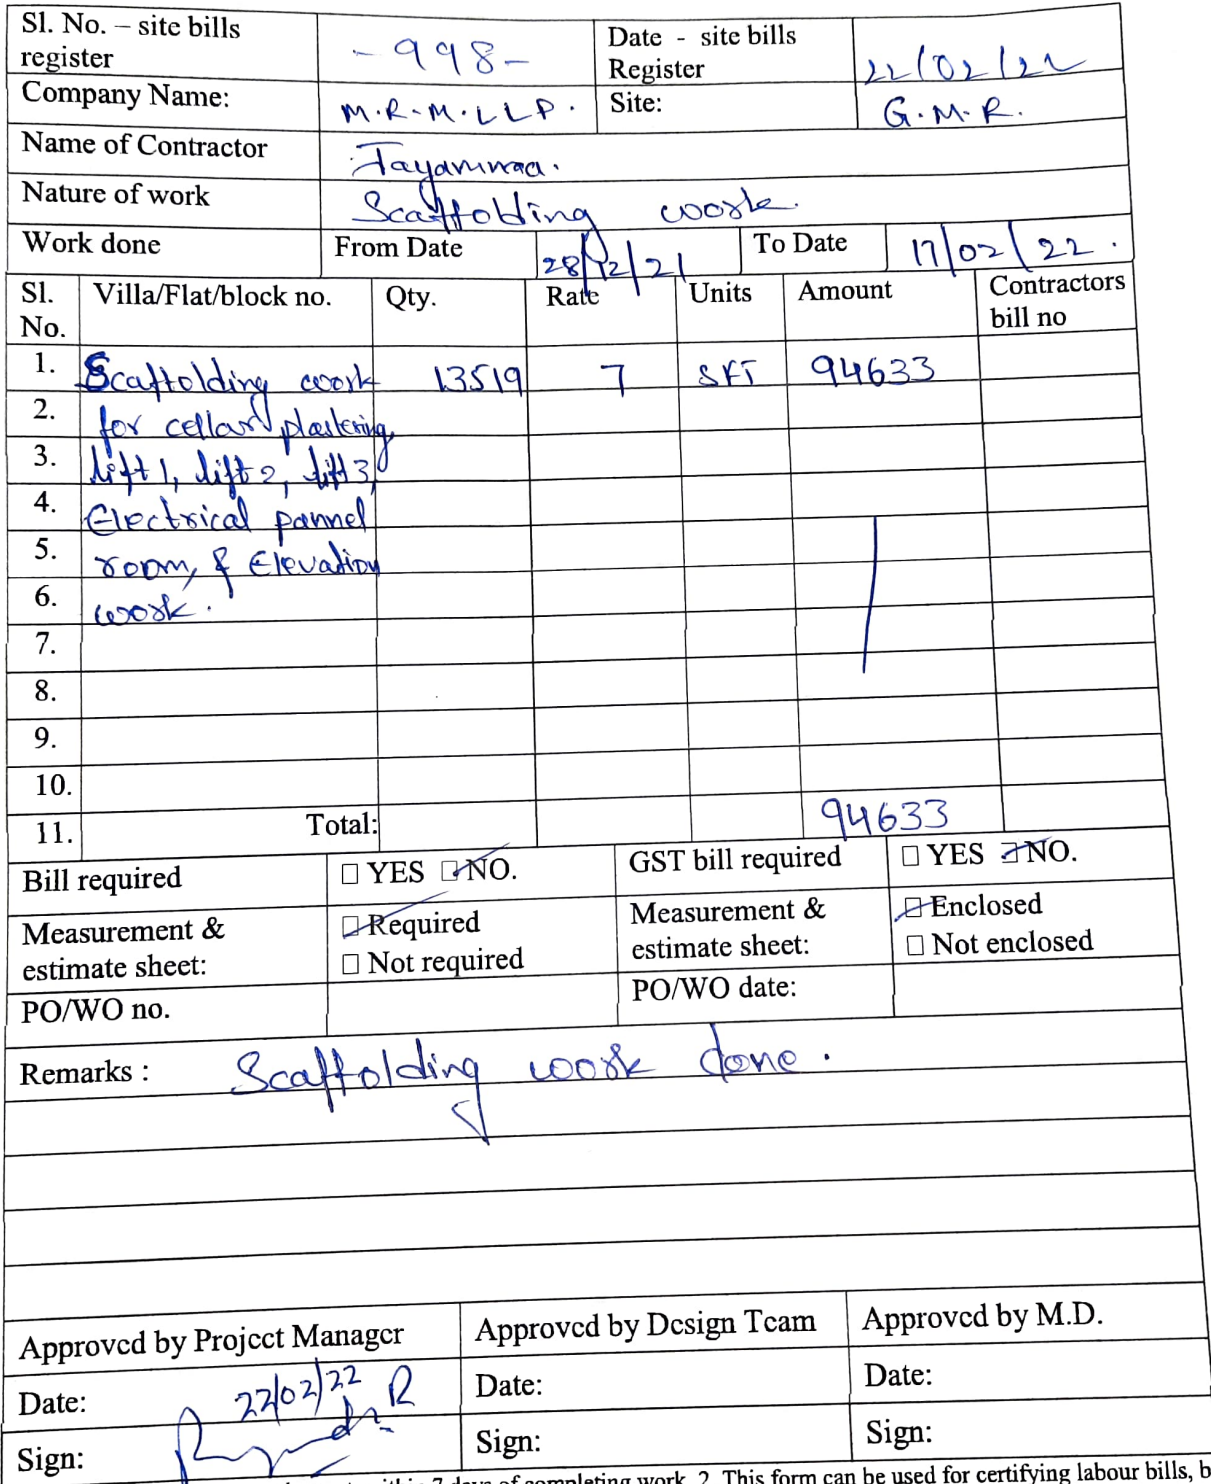 Sl. No. – site bills register -998- Date - site bills Register 22/02/22
Company Name: M.R.M.LLP. Site: G.M.R.
Name of Contractor Jayammaa.
Nature of work Scaffolding work.
Work done From Date 28/12/21 To Date 17/02/22.
Sl. No. Villa/Flat/block no. Qty. Rate Units Amount Contractors bill no
1. Scaffolding work 13519 7 SFT 94633
2. for cellar plastering,
3. lift 1, lift 2, lift 3,
4. Electrical pannel
5. room, & Elevation
6. work.
7.
8.
9.
10.
11. Total: 94633
Bill required □ YES ☑ NO. GST bill required □ YES ☑ NO.
Measurement & estimate sheet: ☑ Required □ Not required Measurement & estimate sheet: ☑ Enclosed □ Not enclosed
PO/WO no. PO/WO date:
Remarks : Scaffolding work done.
Approved by Project Manager Approved by Design Team Approved by M.D.
Date: 22/02/22 Date: Date:
Sign: Sign: Sign:
7 days of completing work. 2. This form can be used for certifying labour bills, b